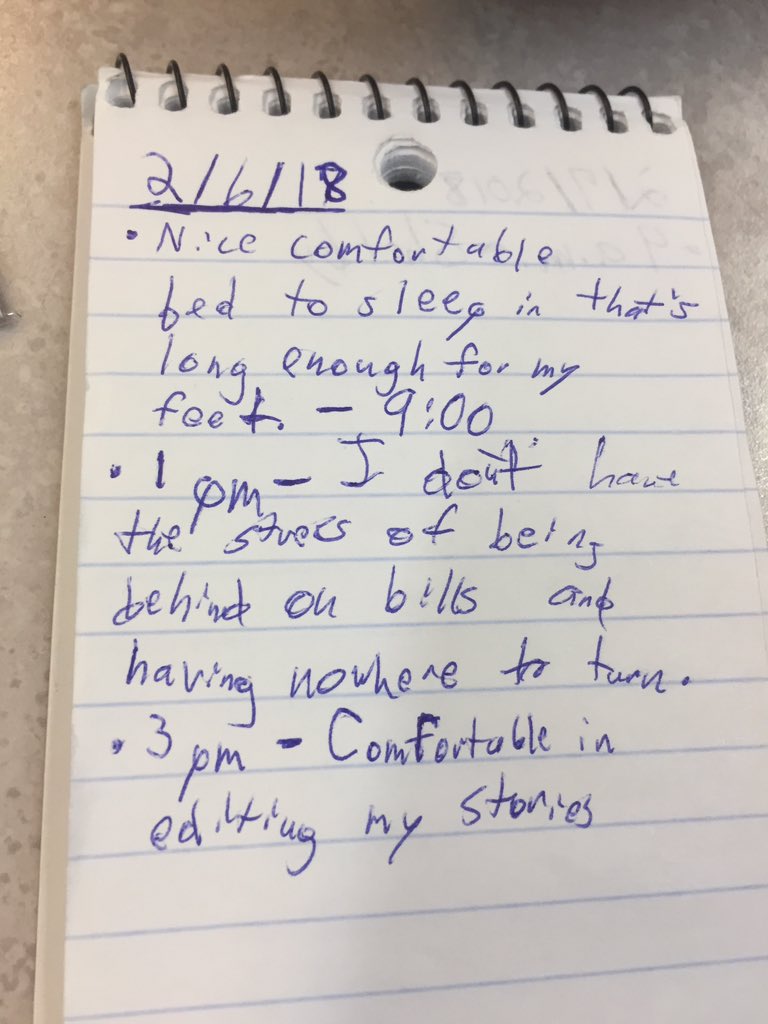 2/6/18
• Nice comfortable
bed to sleep in that's
long enough for my
feet. – 9:00
• 1 pm – I don't have
the stress of being
behind on bills and
having nowhere to turn.
• 3 pm – Comfortable in
editing my stories